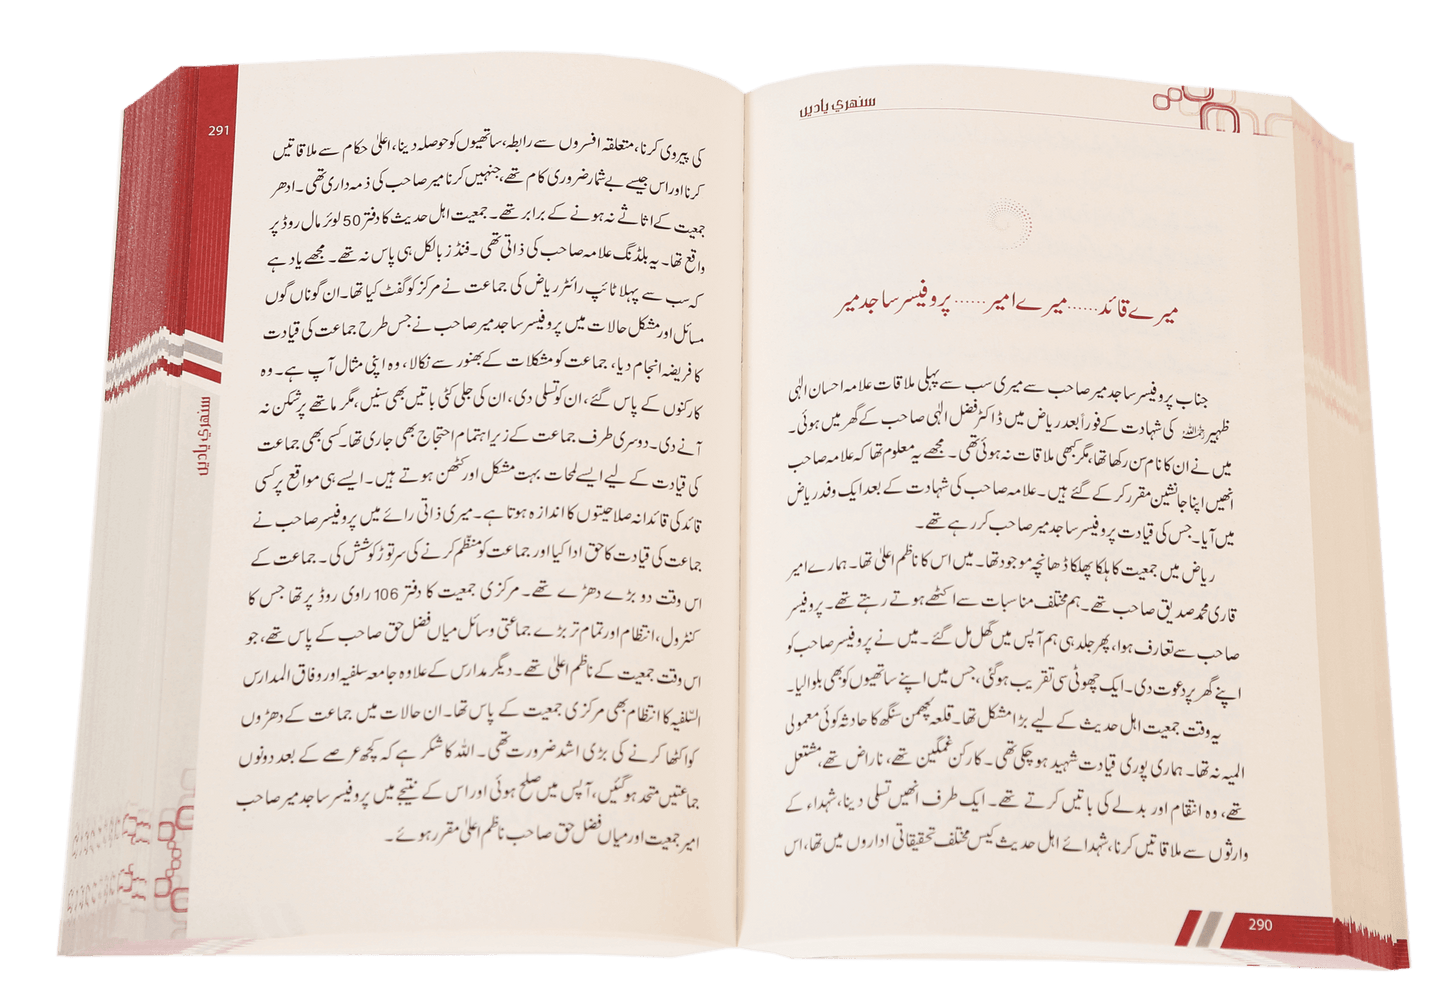 سنهری یادیں
میرے قائد......میرے امیر......پروفیسر ساجد میر
جناب پروفیسر ساجد میر صاحب سے میری سب سے پہلی ملاقات علامہ احسان الٰہی
ظہیر رحمہ اللہ کی شہادت کے فوراً بعد ریاض میں ڈاکٹر فضل الٰہی صاحب کے گھر میں ہوئی۔
میں نے ان کا نام سن رکھا تھا، مگر کبھی ملاقات نہ ہوئی تھی۔ مجھے یہ معلوم تھا کہ علامہ صاحب
انھیں اپنا جانشین مقرر کر کے گئے ہیں۔ علامہ صاحب کی شہادت کے بعد ایک وفد ریاض
میں آیا۔ جس کی قیادت پروفیسر ساجد میر صاحب کر رہے تھے۔
ریاض میں جمعیت کا ہلکا پھلکا ڈھانچہ موجود تھا۔ میں اس کا ناظم اعلیٰ تھا۔ ہمارے امیر
قاری محمد صدیق صاحب تھے۔ ہم مختلف مناسبات سے اکٹھے ہوتے رہتے تھے۔ پروفیسر
صاحب سے تعارف ہوا، پھر جلد ہی ہم آپس میں گھل مل گئے۔ میں نے پروفیسر صاحب کو
اپنے گھر پر دعوت دی۔ ایک چھوٹی سی تقریب ہو گئی، جس میں اپنے ساتھیوں کو بھی بلوا لیا۔
یہ وقت جمعیت اہل حدیث کے لیے بڑا مشکل تھا۔ قلعہ لچھمن سنگھ کا حادثہ کوئی معمولی
المیہ نہ تھا۔ ہماری پوری قیادت شہید ہو چکی تھی۔ کارکن غمگین تھے، ناراض تھے، مشتعل
تھے، وہ انتقام اور بدلے کی باتیں کرتے تھے۔ ایک طرف انھیں تسلی دینا، شہداء کے
وارثوں سے ملاقاتیں کرنا، شہدائے اہل حدیث کیس مختلف تحقیقاتی اداروں میں تھا، اس
290
291
کی پیروی کرنا، متعلقہ افسروں سے رابطہ، ساتھیوں کو حوصلہ دینا، اعلیٰ حکام سے ملاقاتیں
کرنا اور اس جیسے بے شمار ضروری کام تھے، جنہیں کرنا میر صاحب کی ذمہ داری تھی۔ ادھر
جمعیت کے اثاثے نہ ہونے کے برابر تھے۔ جمعیت اہل حدیث کا دفتر 50 لوئر مال روڈ پر
واقع تھا۔ یہ بلڈنگ علامہ صاحب کی ذاتی تھی۔ فنڈز بالکل ہی پاس نہ تھے۔ مجھے یاد ہے
کہ سب سے پہلا ٹائپ رائٹر ریاض کی جماعت نے مرکز کو گفٹ کیا تھا۔ ان گوناں گوں
مسائل اور مشکل حالات میں پروفیسر ساجد میر صاحب نے جس طرح جماعت کی قیادت
کا فریضہ انجام دیا، جماعت کو مشکلات کے بھنور سے نکالا، وہ اپنی مثال آپ ہے۔ وہ
کارکنوں کے پاس گئے، ان کو تسلی دی، ان کی جلی کٹی باتیں بھی سنیں، مگر ماتھے پر شکن نہ
آنے دی۔ دوسری طرف جماعت کے زیر اہتمام احتجاج بھی جاری تھا۔ کسی بھی جماعت
کی قیادت کے لیے ایسے لمحات بہت مشکل اور کٹھن ہوتے ہیں۔ ایسے ہی مواقع پر کسی
قائد کی قائدانہ صلاحیتوں کا اندازہ ہوتا ہے۔ میری ذاتی رائے میں پروفیسر صاحب نے
جماعت کی قیادت کا حق ادا کیا اور جماعت کو منظّم کرنے کی سر توڑ کوشش کی۔ جماعت کے
اس وقت دو بڑے دھڑے تھے۔ مرکزی جمعیت کا دفتر 106 راوی روڈ پر تھا جس کا
کنٹرول، انتظام اور تمام تر بڑے جماعتی وسائل میاں فضل حق صاحب کے پاس تھے، جو
اس وقت جمعیت کے ناظم اعلیٰ تھے۔ دیگر مدارس کے علاوہ جامعہ سلفیہ اور وفاق المدارس
السّلفیہ کا انتظام بھی مرکزی جمعیت کے پاس تھا۔ ان حالات میں جماعت کے دھڑوں
کو اکٹھا کرنے کی بڑی اشد ضرورت تھی۔ اللہ کا شکر ہے کہ کچھ عرصے کے بعد دونوں
جماعتیں متحد ہو گئیں، آپس میں صلح ہوئی اور اس کے نتیجے میں پروفیسر ساجد میر صاحب
امیر جمعیت اور میاں فضل حق صاحب ناظم اعلیٰ مقرر ہوئے۔